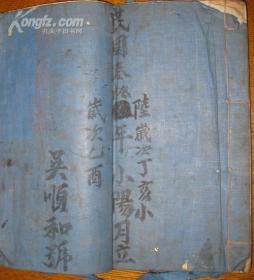 Kongfz.com
孔夫子旧书网
陸歲次丁亥小
民國叁拾四年小陽月立
歲次乙酉
吳順和號